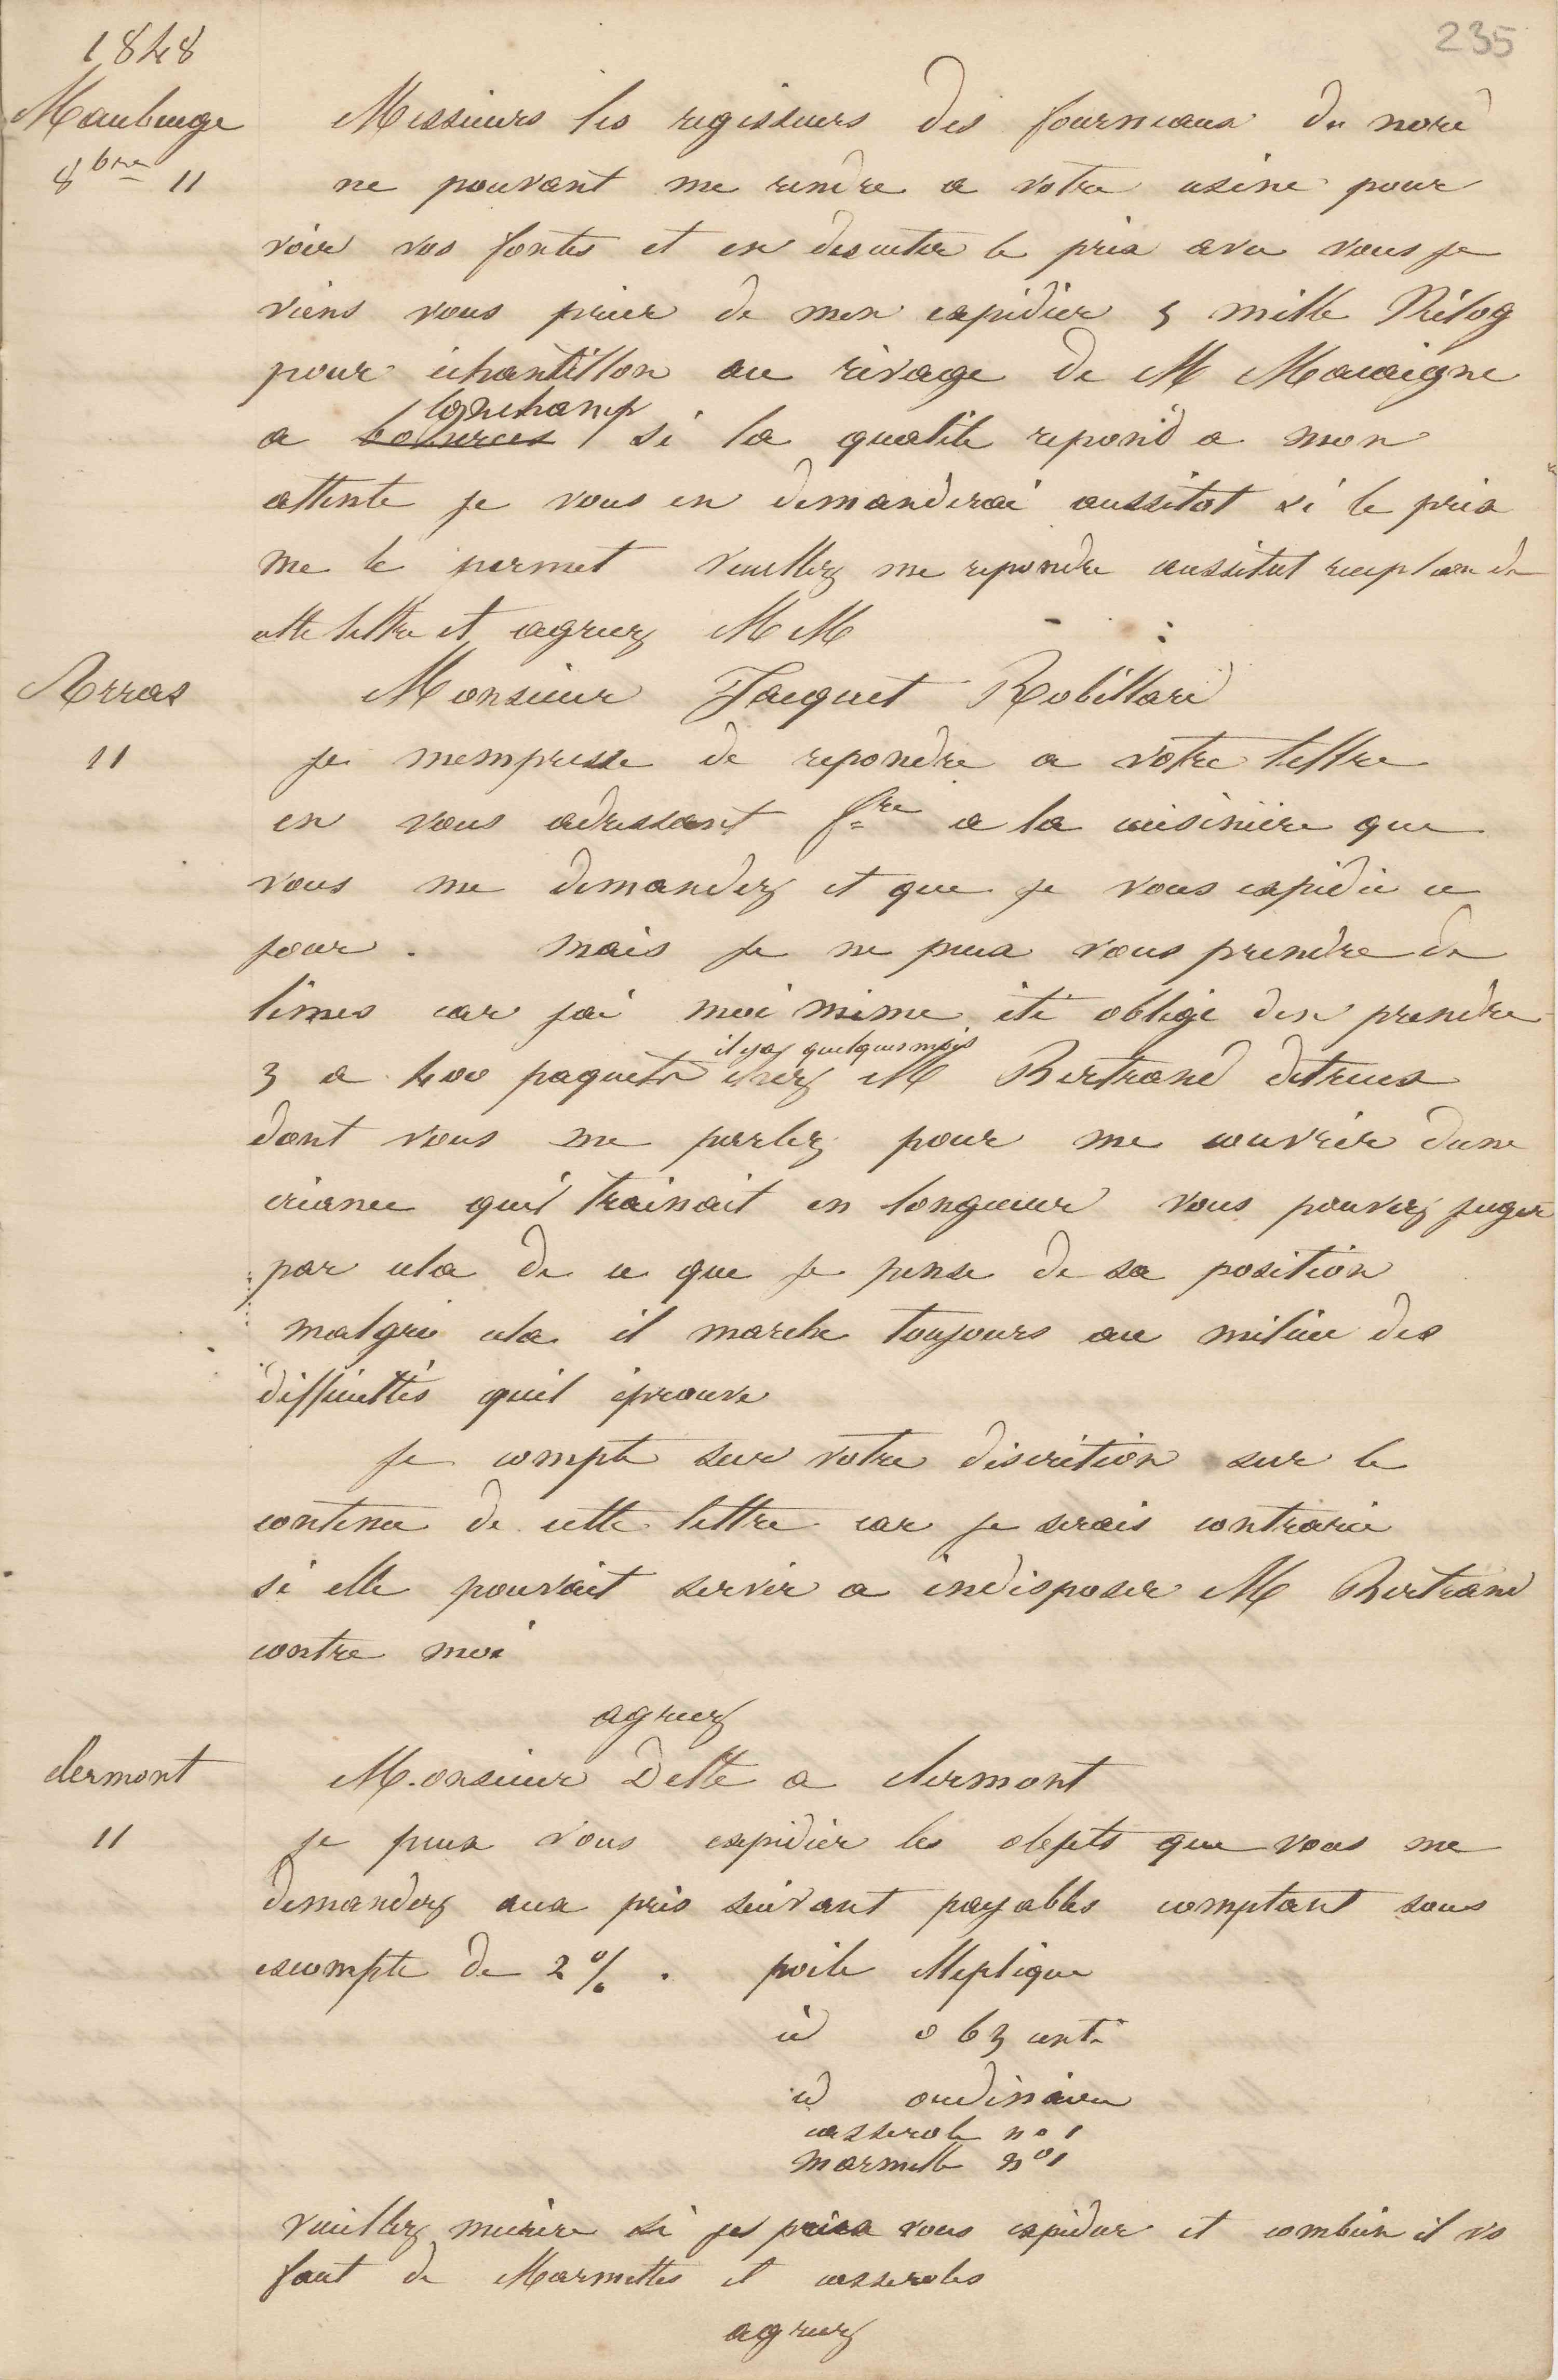 235
1848
Maubeuge
8bre 11
Messieurs les regisseurs des fourneaux du nord
ne pouvant me rendre a votre usine pour
voir vos fontes et en discuter le prix avec vous je
viens vous prier de men expédier 5 mille Kilog
pour échantillon au rivage de M Macaigne
a Lonchamp si la qualité repond a mon
attente je vous en demanderai aussitot si le prix
me le permet veuillez me repondre aussitot reception de
cette lettre et agreez MM
Arras
11
Monsieur Jacquet Robillard
je mempresse de repondre a votre lettre
en vous adressant fre a la cuisinière que
vous me demandez et que je vous expédie ce
jour. mais je ne peux vous prendre de
limes car jai moi même été obligé den prendre
3 a 400 paquets il y a quelques mois chez M Bertrand
dont vous me parlez pour me couvrir dune
créance qui trainait en longueur vous pouvez juger
par cela de ce que je pense de sa position
malgré cela il marche toujours au milieu des
difficultés quil éprouve
je compte sur votre discrétion sur le
contenu de cette lettre car je serais contrarié
si elle pouvait servir a indisposer M Bertrand
contre moi
agreez
clermont
11
Monsieur Delle a clermont
je peux vous expédier les objets que vous me
demandez aux prix suivant payables comptant sous
escompte de 2 %. poile Elleptique
id 0 63 cent
id ordinaire
casserole no 1
marmette no 1
veuillez mecrire si je peux vous expédier et combien il vs
faut de Marmettes et casseroles
agreez